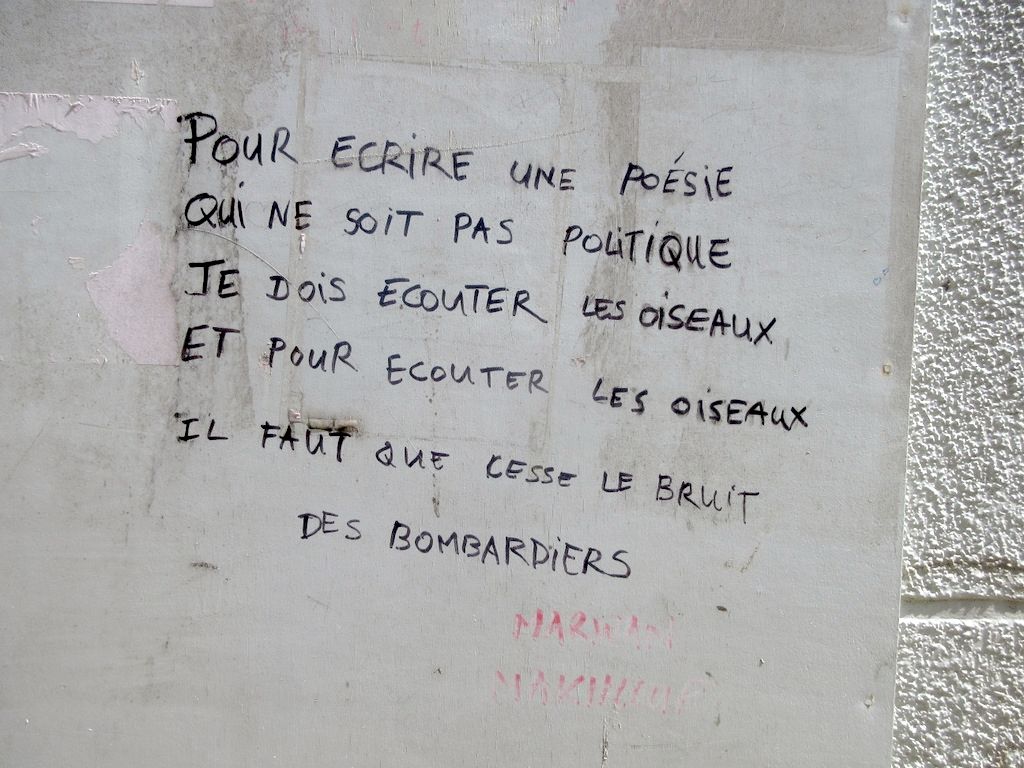 POUR ECRIRE UNE POÉSIE
QUI NE SOIT PAS POLITIQUE
JE DOIS ECOUTER LES OISEAUX
ET POUR ECOUTER LES OISEAUX
IL FAUT QUE CESSE LE BRUIT
DES BOMBARDIERS
MARWAN